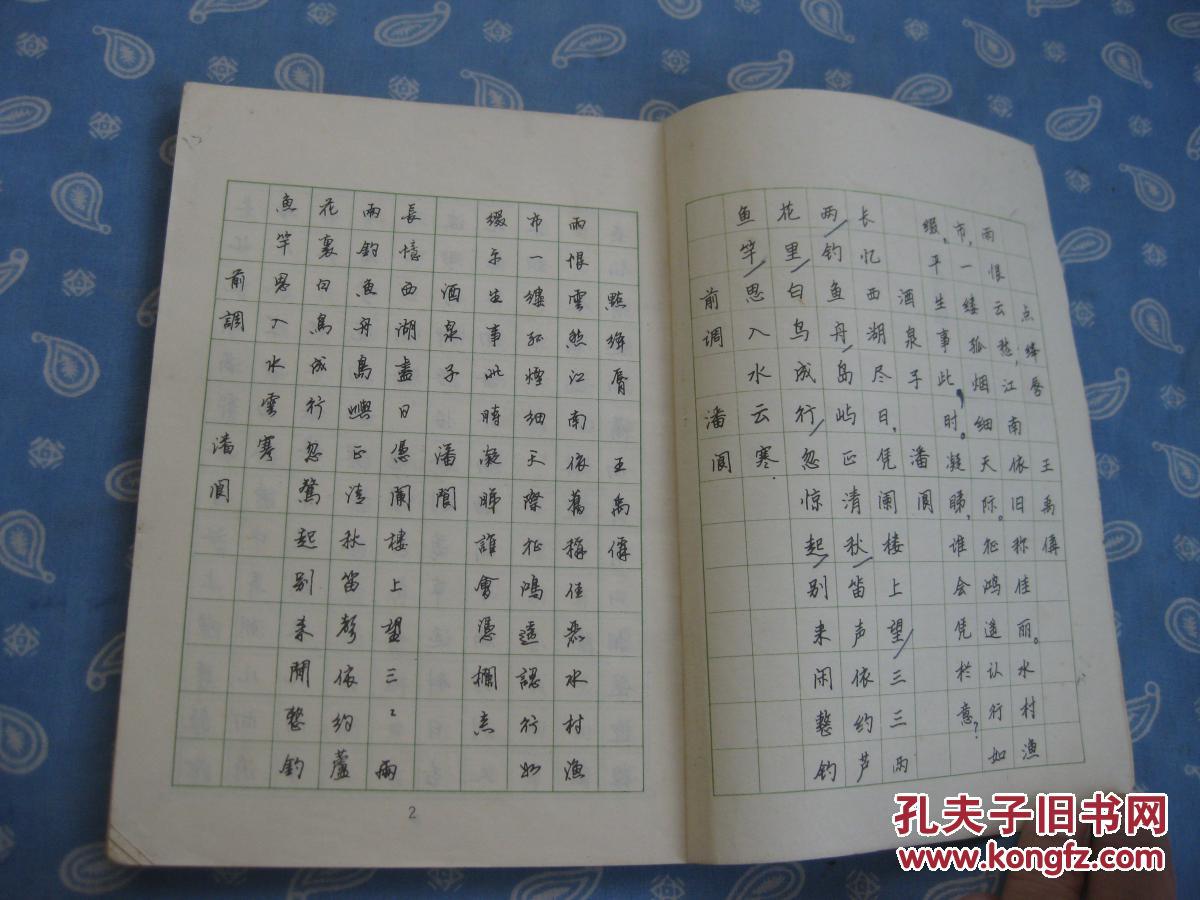 点绛唇 王禹偁
雨恨云愁，江南依旧称佳丽。水村渔
市，一缕孤烟细天际。征鸿遥认行如
缀，平生事此，时。凝睇，谁会凭栏意？
酒泉子 潘阆
长忆西湖尽日，凭阑楼上望/三三两
两/钓鱼舟/岛屿正清秋/笛声依约芦
花里/白鸟成行/忽惊起/别来闲整钓
鱼竿/思入水云寒.
前调 潘阆
點絳脣 王禹偁
雨恨雲愁江南依舊稱佳麗水村漁
市一縷孤煙細天際征鴻遥認行如
綴平生事此時凝睇誰會憑欄意
酒泉子 潘閬
長憶西湖盡日憑闌樓上望三〻兩
兩釣魚舟島嶼正清秋笛聲依約蘆
花裏白鳥成行忽驚起别來閒整釣
魚竿思入水雲寒
前調 潘閬
2
孔夫子旧书网
www.kongfz.com